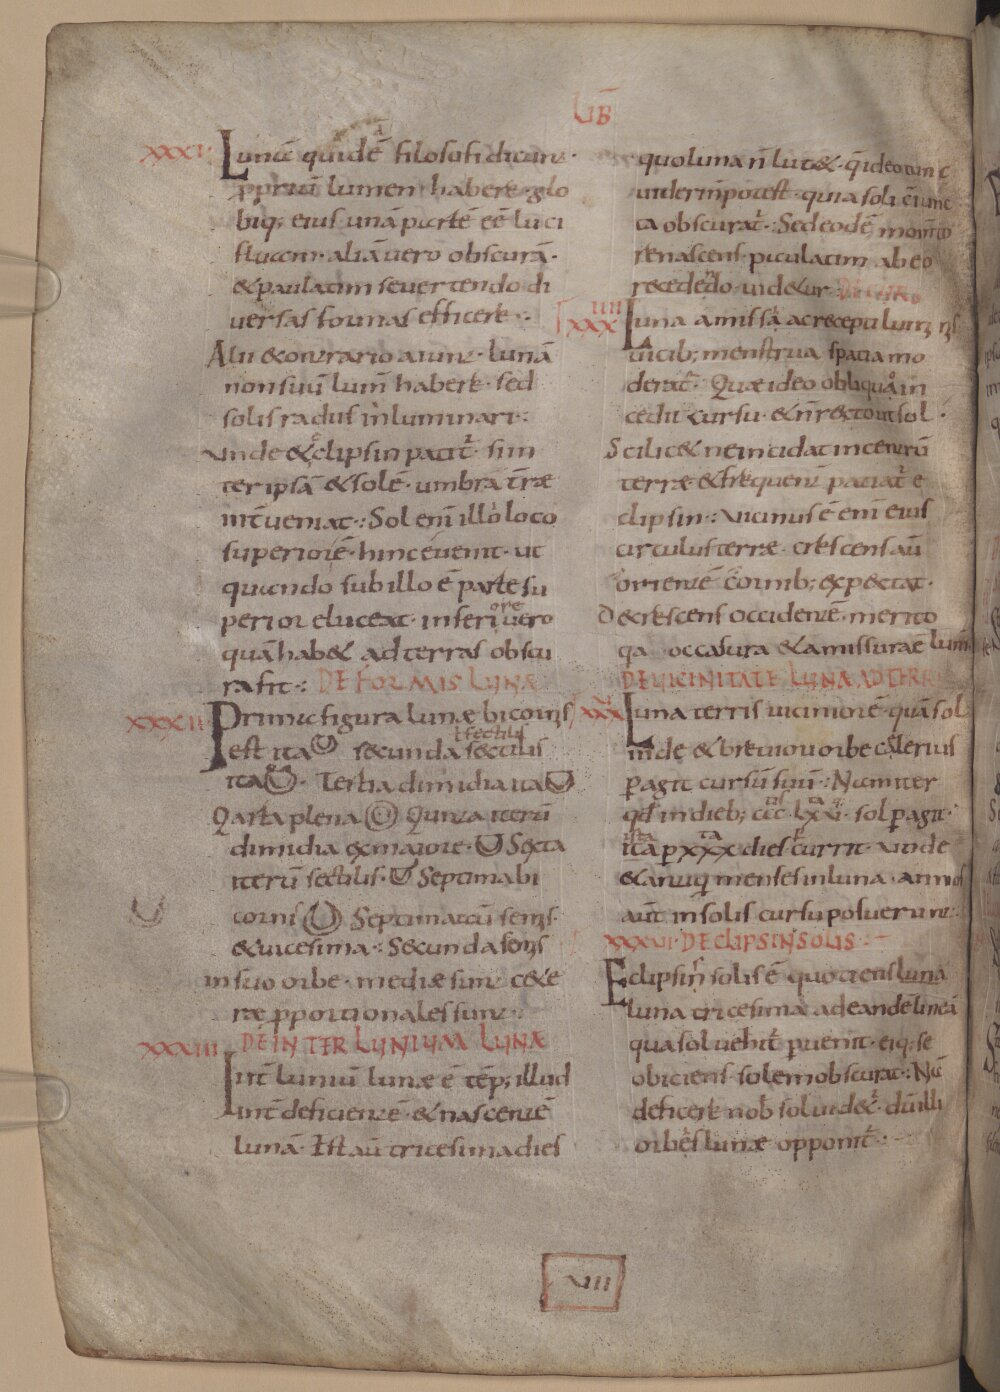 LIB
XXXI Lunā quidē filosofi dicunt
ꝓpriū lumen habere glo
biq; eius unā partē eē luci
fluam aliā uero obscurā
& paulatim se uertendo di
uersas formas efficere
Alii econtrario aiunt lunā
non suū lum̄ habere sed
solis radiis inluminari
unde & eclipsin patit̄ si in
ter ipsā & solē umbra t̄ræ
int̄ueniat. Sol eni illo loco
superior ē hinc euenit ut
quando sub illo ē parte su
perior eluceat inferiore uero
quā hab& ad terras obscu
ra sit. DE FORMIS LUNÆ
XXXII Prima figura lunæ bicornis
est ita secunda sectilis
ita Tertia dimidia ita
Qarta plena Quinta iterū
dimidia ex maiore Sexta
iterū sectilis Septima bi
cornis Septima aū semis
& uicesima Secunda semis
in suo orbe mediæ sunt cete
ræ ꝓportionales sunt
XXXIII DE INTERLUNIUM LUNÆ
Int̄luniū lunæ ē tēp; illud
int̄ deficientē & nascentē
lunā. Est aū tricesima dies
quo luna n̄ luc& q̄ ideo tunc
uideri n̄ potest quia soli c̄iunc
ta obscurat̄. Sed eodē mom̄to
renascens p iculatim ab eo
recedendo uidetur DE CURSU
XXXIIII Luna amissi ac recepti lumi nis
uicib; menstrua spatia mo
derat̄. Quæ ideo obliquo in
cedit cursu & n̄ recto ut sol
Scilic& ne incidat in centrū
terræ & frequent̄ patiat̄ e
clipsin. Uicinus ē eni eius
circulus terræ crescens aū
orientē cornib; expectat
Decrescens occidentē merito
qa occasura & amissura ē lum̄
DE UICINITATE LUNÆ AD TERR
XXXV Luna terris uicinior ē quā sol
inde & breuiori orbe celerius
ꝑagit cursū suū. Nam iter
qd̄ in dieb; ccc lxv sol ꝑagit
ista ꝑ xxx dies currit unde
& antiqui menses in luna annos
aūt in solis cursu posuerunt
XXXVI DE ECLIPSIN SOLIS
Eclipsin solis ē quotiens luna
luna tricesima ad eandē lineā
qua sol uehit̄ ꝑuenit eiq; se
obiciens solem obscurat. Nā
deficere nob̄ sol uidet̄ dū illi
orbis lunæ opponit̄.
XIII